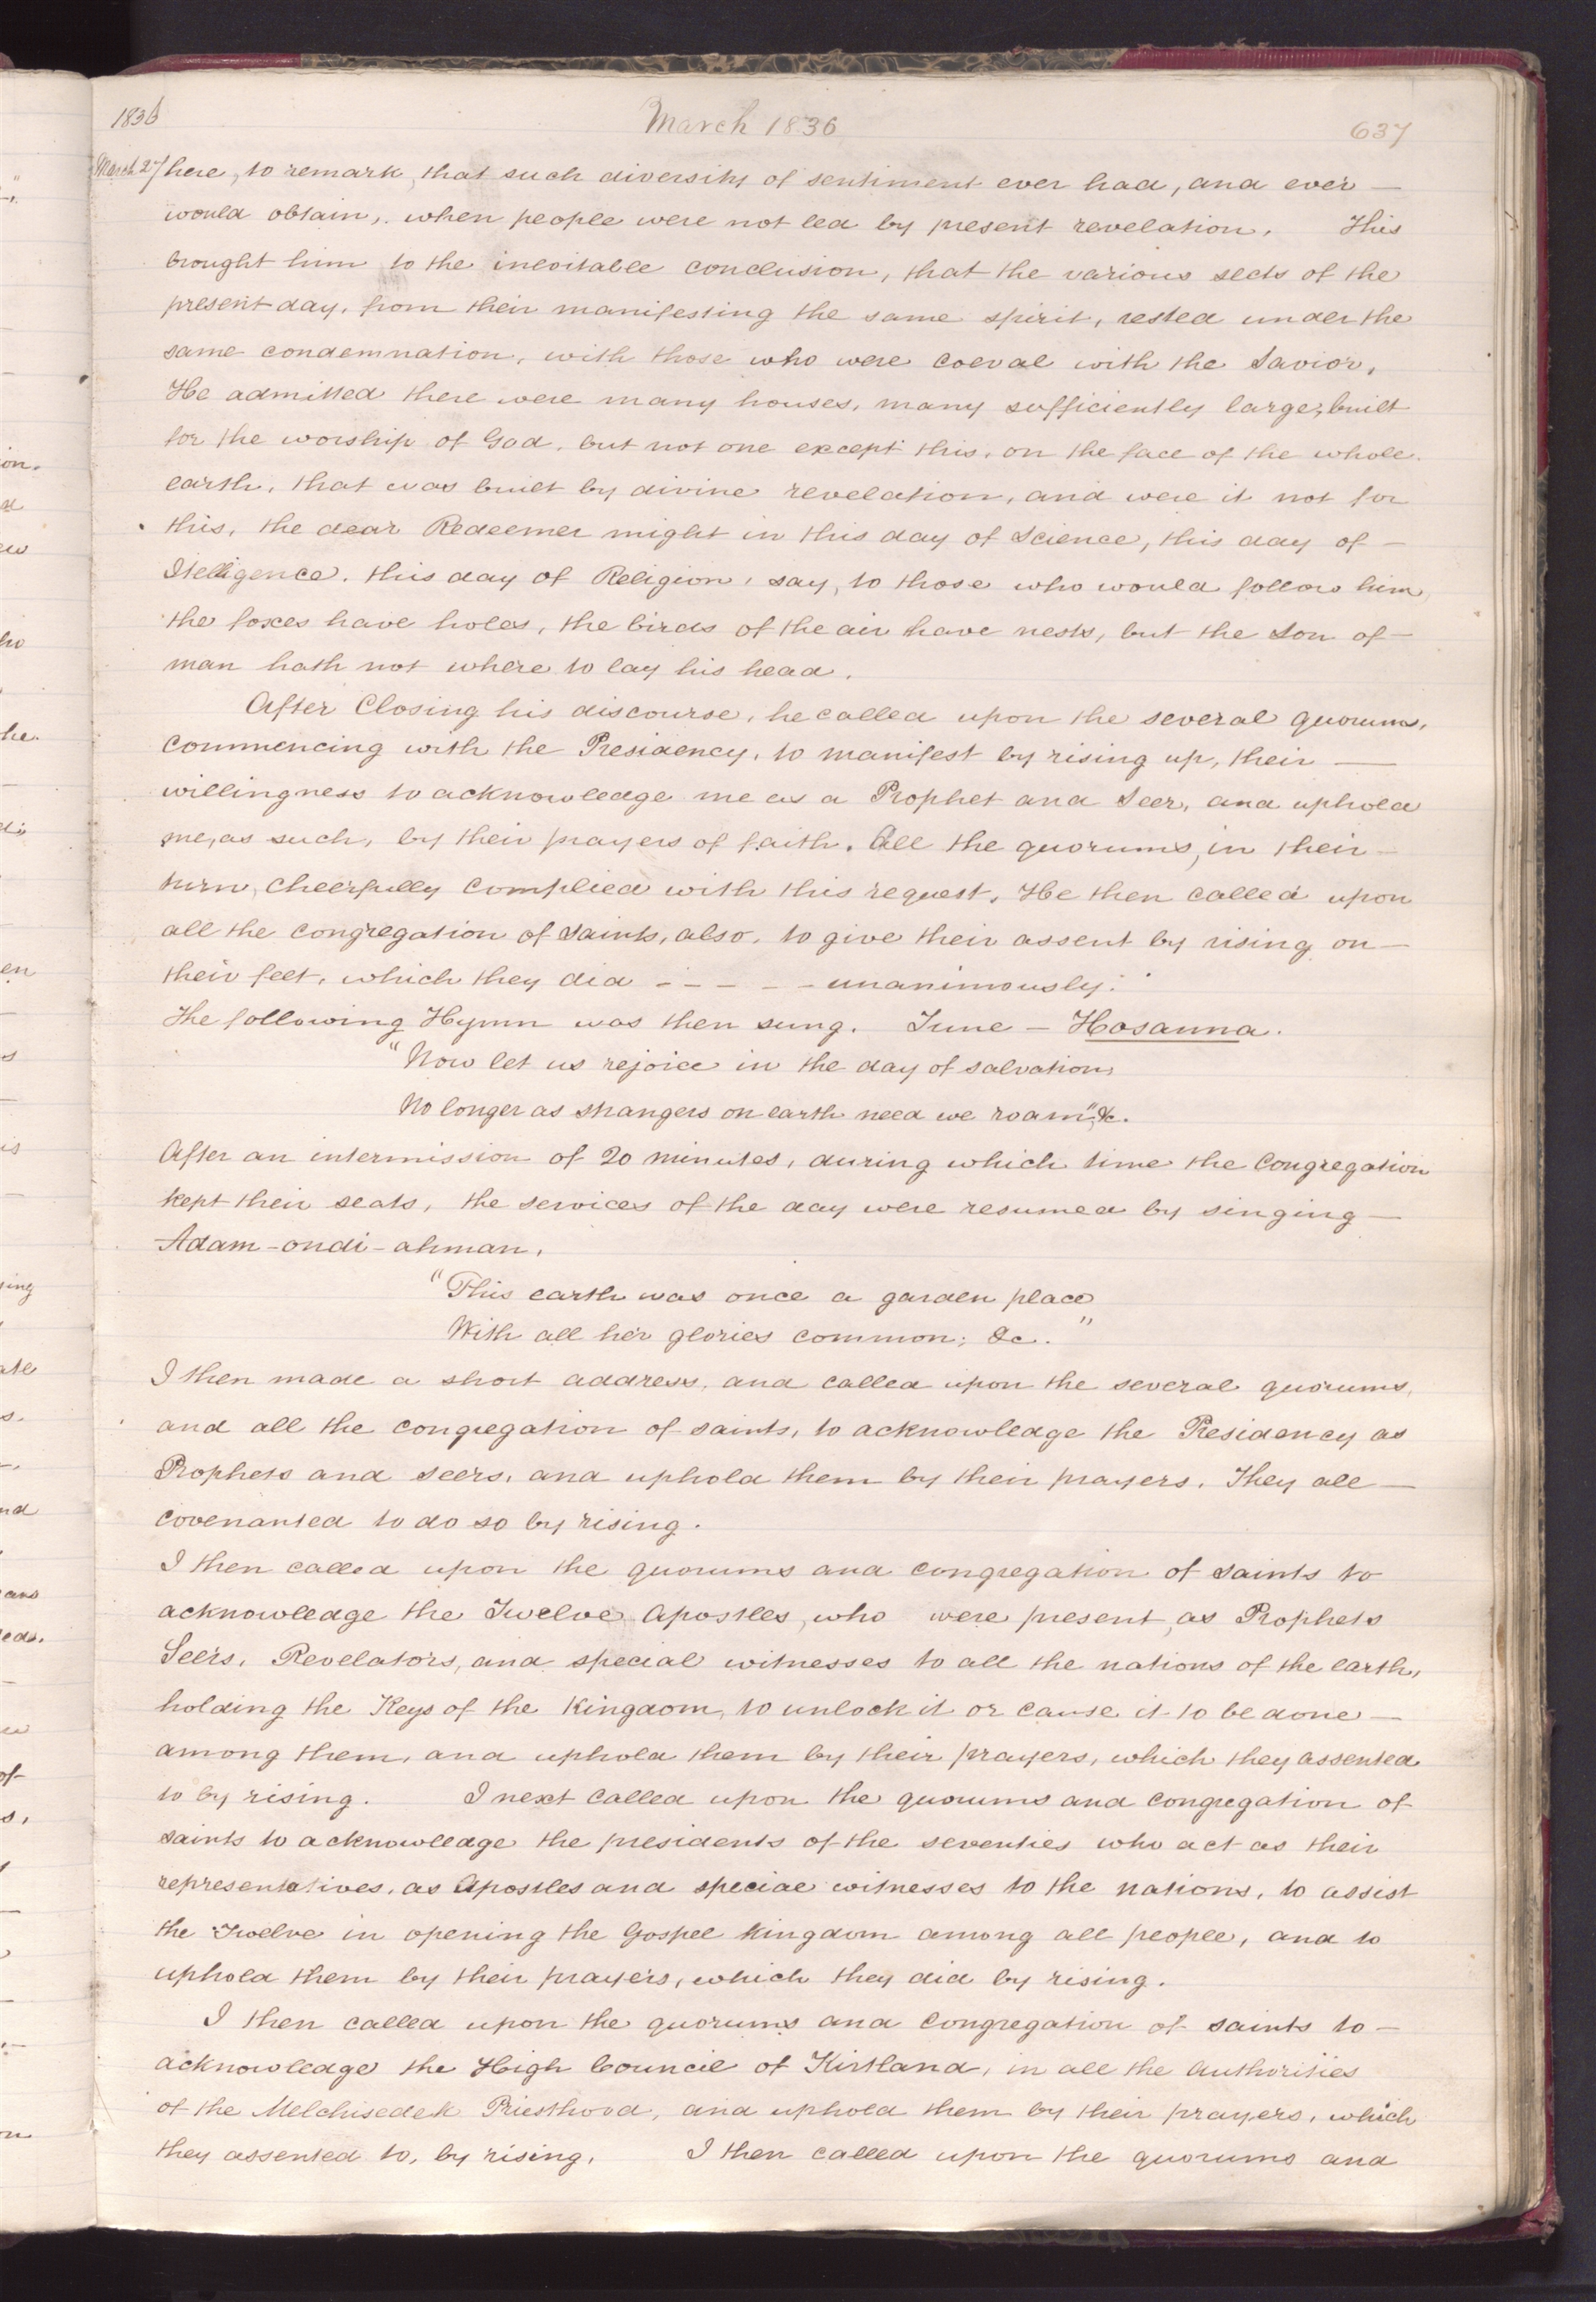 1836 March 1836 637
March 27 here, to remark, that such diversity of sentiment ever had, and ever —
would obtain, when people were not led by present revelation. This
brought him to the inevitable conclusion, that the various sects of the
present day, from their manifesting the same spirit, rested under the
same condemnation, with those who were coeval with the Savior.
He admitted there were many houses, many sufficiently large, built
for the worship of God, but not one except this, on the face of the whole
earth, that was built by divine revelation, and were it not for
this, the dear Redeemer might in this day of Science, this day of —
Itelligence, this day of Religion, say, to those who would follow him,
the foxes have holes, the birds of the air have nests, but the Son of —
man hath not where to lay his head.
After Closing his discourse, he called upon the several quorums,
commencing with the Presidency, to manifest by rising up, their —
willingness to acknowledge me as a Prophet and Seer, and uphold
me, as such, by their prayers of faith. All the quorums, in their —
turn, cheerfully complied with this request. He then called upon
all the congregation of Saints, also, to give their assent by rising on —
their feet, which they did - - - - - unanimously.
The following Hymn was then sung. Tune — Hosanna.
"Now let us rejoice in the day of salvation,
No longer as strangers on earth need we roam", &c.
After an intermission of 20 minutes, during which time the Congregation
kept their seats, the services of the day were resumed by singing —
Adam-ondi-ahman,
"This earth was once a garden place
With all her glories common; &c."
I then made a short address, and called upon the several quorums,
and all the congregation of saints, to acknowledge the Presidency as
Prophets and Seers, and uphold them by their prayers. They all —
covenanted to do so by rising.
I then called upon the quorums and congregation of saints to
acknowledge the Twelve Apostles, who were present, as Prophets
Seers, Revelators, and special witnesses to all the nations of the earth,
holding the Keys of the Kingdom, to unlock it or cause it to be done —
among them, and uphold them by their prayers, which they assented
to by rising. I next called upon the quorums and congregation of
saints to acknowledge the presidents of the seventies who act as their
representatives, as Apostles and special witnesses to the nations, to assist
the Twelve in opening the Gospel kingdom among all people, and to
uphold them by their prayers, which they did by rising.
I then called upon the quorums and congregation of saints to —
acknowledge the High Council of Kirtland, in all the authorities
of the Melchisedek Priesthood, and uphold them by their prayers, which
they assented to, by rising. I then called upon the quorums and